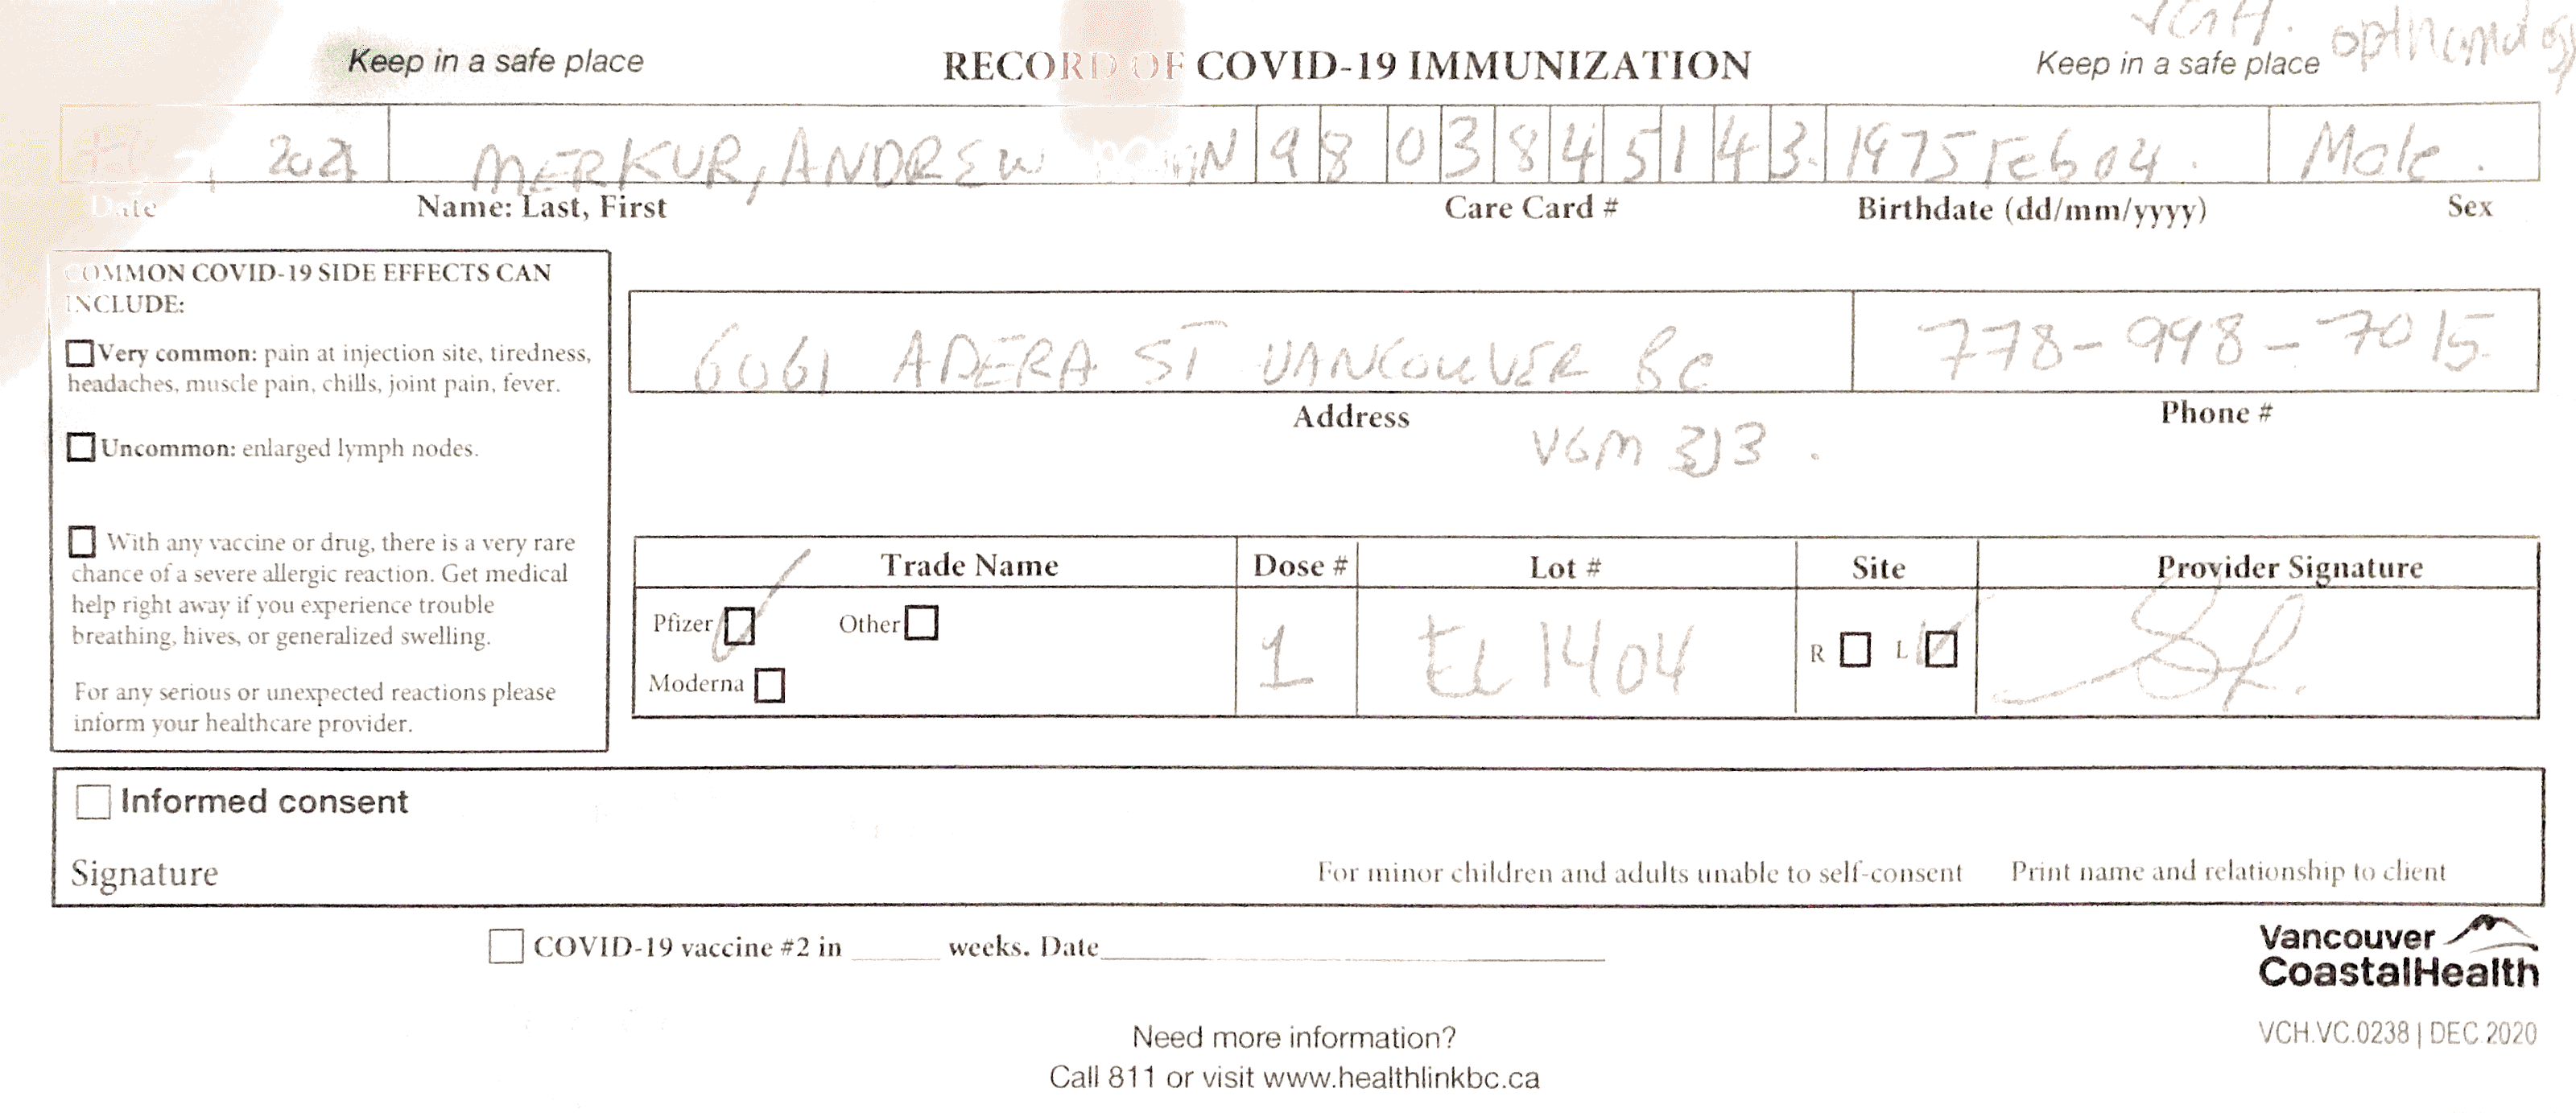 VGH. opthamology
Keep in a safe place RECORD OF COVID-19 IMMUNIZATION Keep in a safe place
2021 MERKUR, ANDREW 9803845143. 1975 Feb 04. Male.
Date Name: Last, First Care Card # Birthdate (dd/mm/yyyy) Sex
COMMON COVID-19 SIDE EFFECTS CAN
INCLUDE:
Very common: pain at injection site, tiredness,
headaches, muscle pain, chills, joint pain, fever.
Uncommon: enlarged lymph nodes.
With any vaccine or drug, there is a very rare
chance of a severe allergic reaction. Get medical
help right away if you experience trouble
breathing, hives, or generalized swelling.
For any serious or unexpected reactions please
inform your healthcare provider.
6061 ADERA ST VANCOUVER BC 778-998-7015
Address Phone #
V6M 3J3.
Trade Name Dose # Lot # Site Provider Signature
Pfizer Other 1 EL1404 R L
Moderna
Informed consent
Signature For minor children and adults unable to self-consent Print name and relationship to client
COVID-19 vaccine #2 in ______ weeks. Date______
Vancouver
CoastalHealth
VCH.VC.0238 | DEC 2020
Need more information?
Call 811 or visit www.healthlinkbc.ca